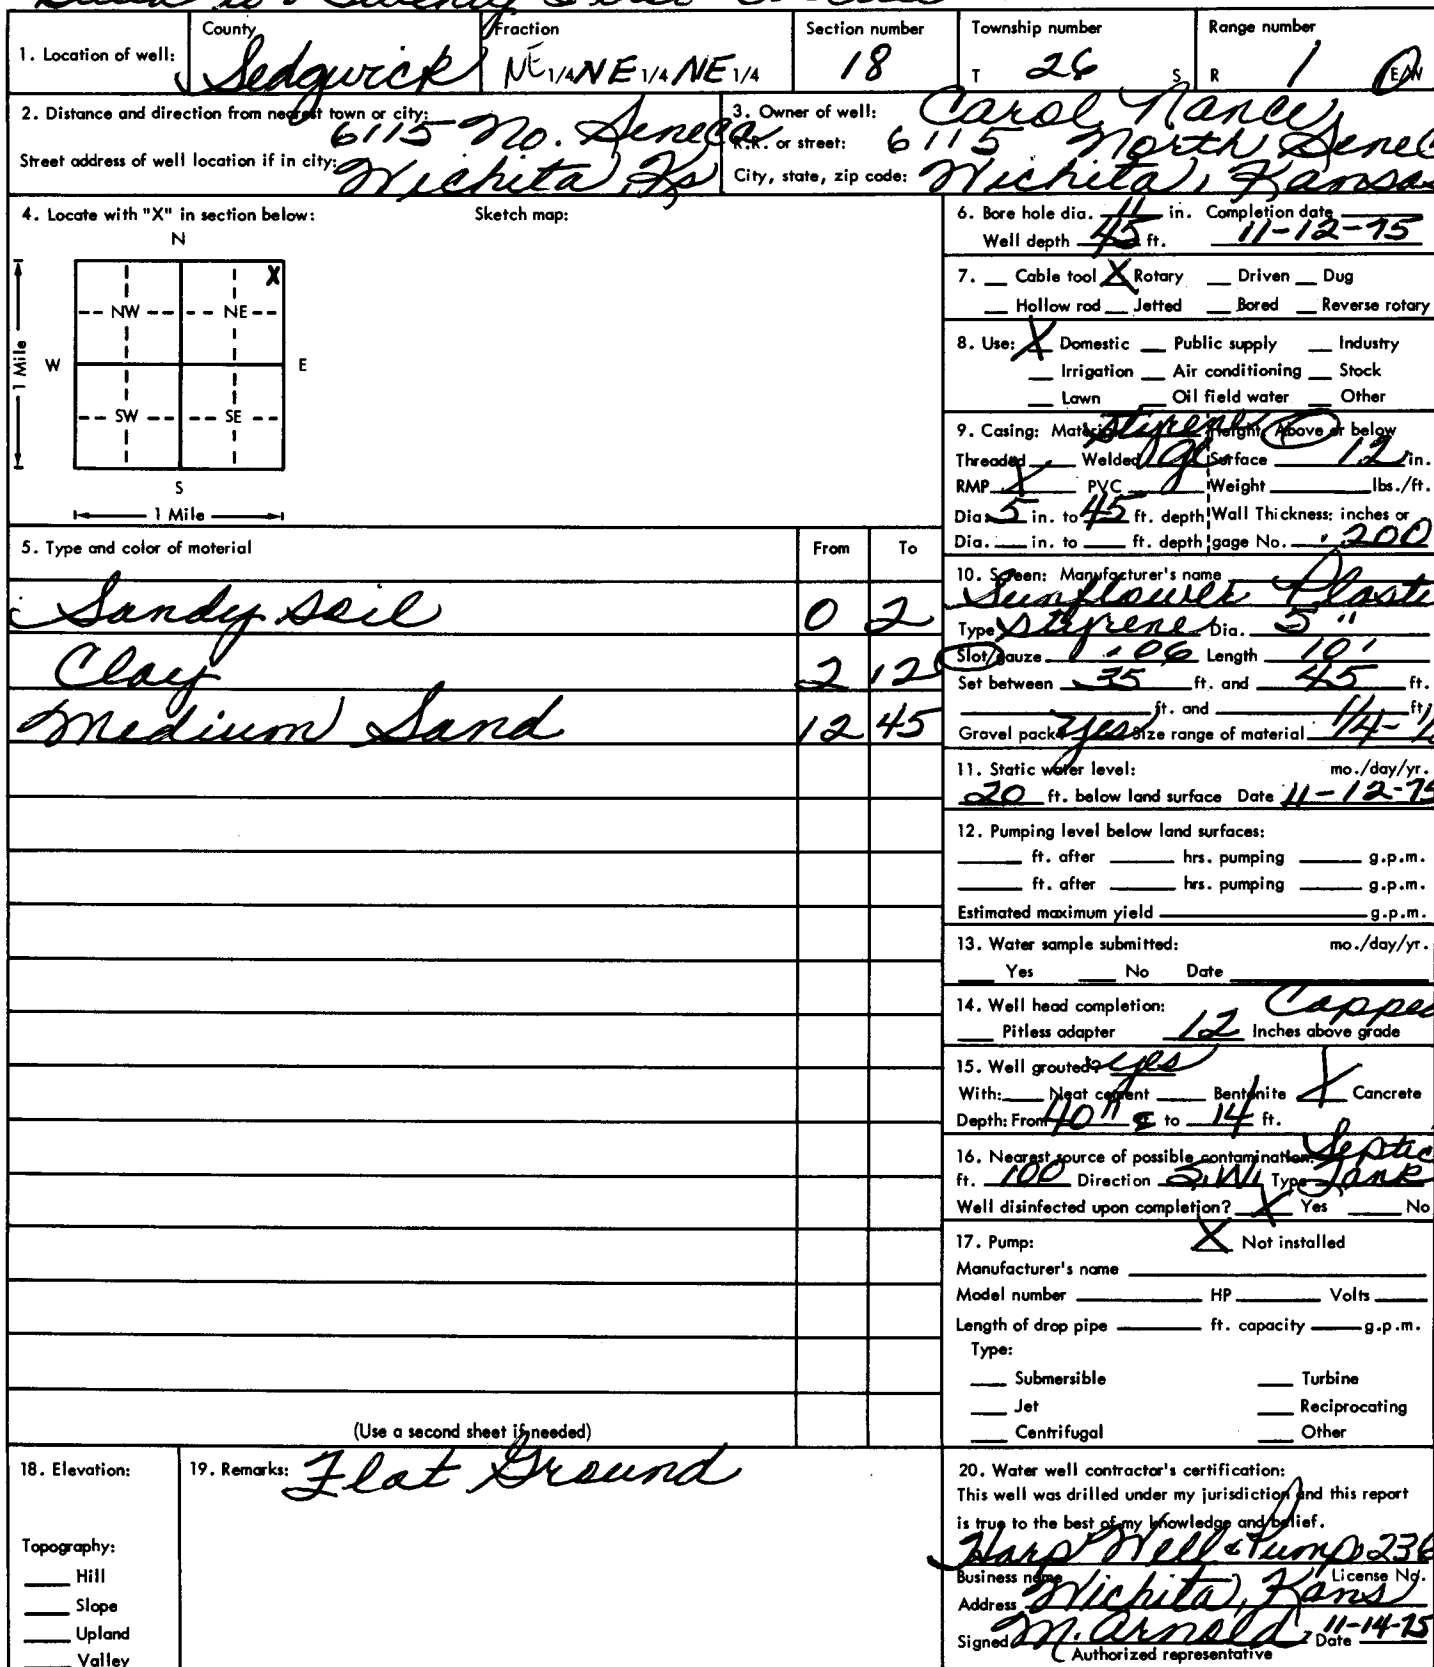 1. Location of well: County Sedgwick Fraction NE 1/4 NE 1/4 NE 1/4 Section number 18 Township number T 26 S Range number R 1 E/W
2. Distance and direction from nearest town or city: 6115 No. Seneca
Street address of well location if in city: Wichita, Ks
3. Owner of well: Carol Nance
R.R. or street: 6115 North Senec
City, state, zip code: Wichita, Kansas
4. Locate with "X" in section below: Sketch map:
N
X
NW NE
W E
1 Mile
SW SE
S
1 Mile
5. Type and color of material From To
Sandy soil 0 2
Clay 2 12
Medium Sand 12 45
(Use a second sheet if needed)
6. Bore hole dia. 11 in. Completion date
Well depth 45 ft. 11-12-75
7. __ Cable tool X Rotary __ Driven __ Dug
__ Hollow rod __ Jetted __ Bored __ Reverse rotary
8. Use: X Domestic __ Public supply __ Industry
__ Irrigation __ Air conditioning __ Stock
__ Lawn __ Oil field water __ Other
9. Casing: Material styrene Height: Above or below
Threaded __ Welded Surface 12 in.
RMP X PVC __ Weight __ lbs./ft.
Dia. 5 in. to 45 ft. depth Wall Thickness: inches or
Dia. __ in. to __ ft. depth gage No. .200
10. Screen: Manufacturer's name
Sunflower Plasti
Type styrene Dia. 5"
Slot/gauze .06 Length 10'
Set between 35 ft. and 45 ft.
__ ft. and __ ft.
Gravel pack? yes Size range of material 1/4-1/
11. Static water level: mo./day/yr.
20 ft. below land surface Date 11-12-75
12. Pumping level below land surfaces:
__ ft. after __ hrs. pumping __ g.p.m.
__ ft. after __ hrs. pumping __ g.p.m.
Estimated maximum yield __ g.p.m.
13. Water sample submitted: mo./day/yr.
__ Yes __ No Date __
14. Well head completion: Capped
__ Pitless adapter 12 Inches above grade
15. Well grouted? yes
With: __ Neat cement __ Bentonite X Concrete
Depth: From 40" to 14 ft.
16. Nearest source of possible contamination: Septic
ft. 100 Direction S.W. Type Tank
Well disinfected upon completion? X Yes __ No
17. Pump: X Not installed
Manufacturer's name __
Model number __ HP __ Volts __
Length of drop pipe __ ft. capacity __ g.p.m.
Type:
__ Submersible __ Turbine
__ Jet __ Reciprocating
__ Centrifugal __ Other
18. Elevation:
Topography:
__ Hill
__ Slope
__ Upland
__ Valley
19. Remarks: Flat Ground
20. Water well contractor's certification:
This well was drilled under my jurisdiction and this report
is true to the best of my knowledge and belief.
Harp Well & Pump 236
Business name License No.
Address Wichita, Kans
Signed M. Arnold Date 11-14-75
Authorized representative